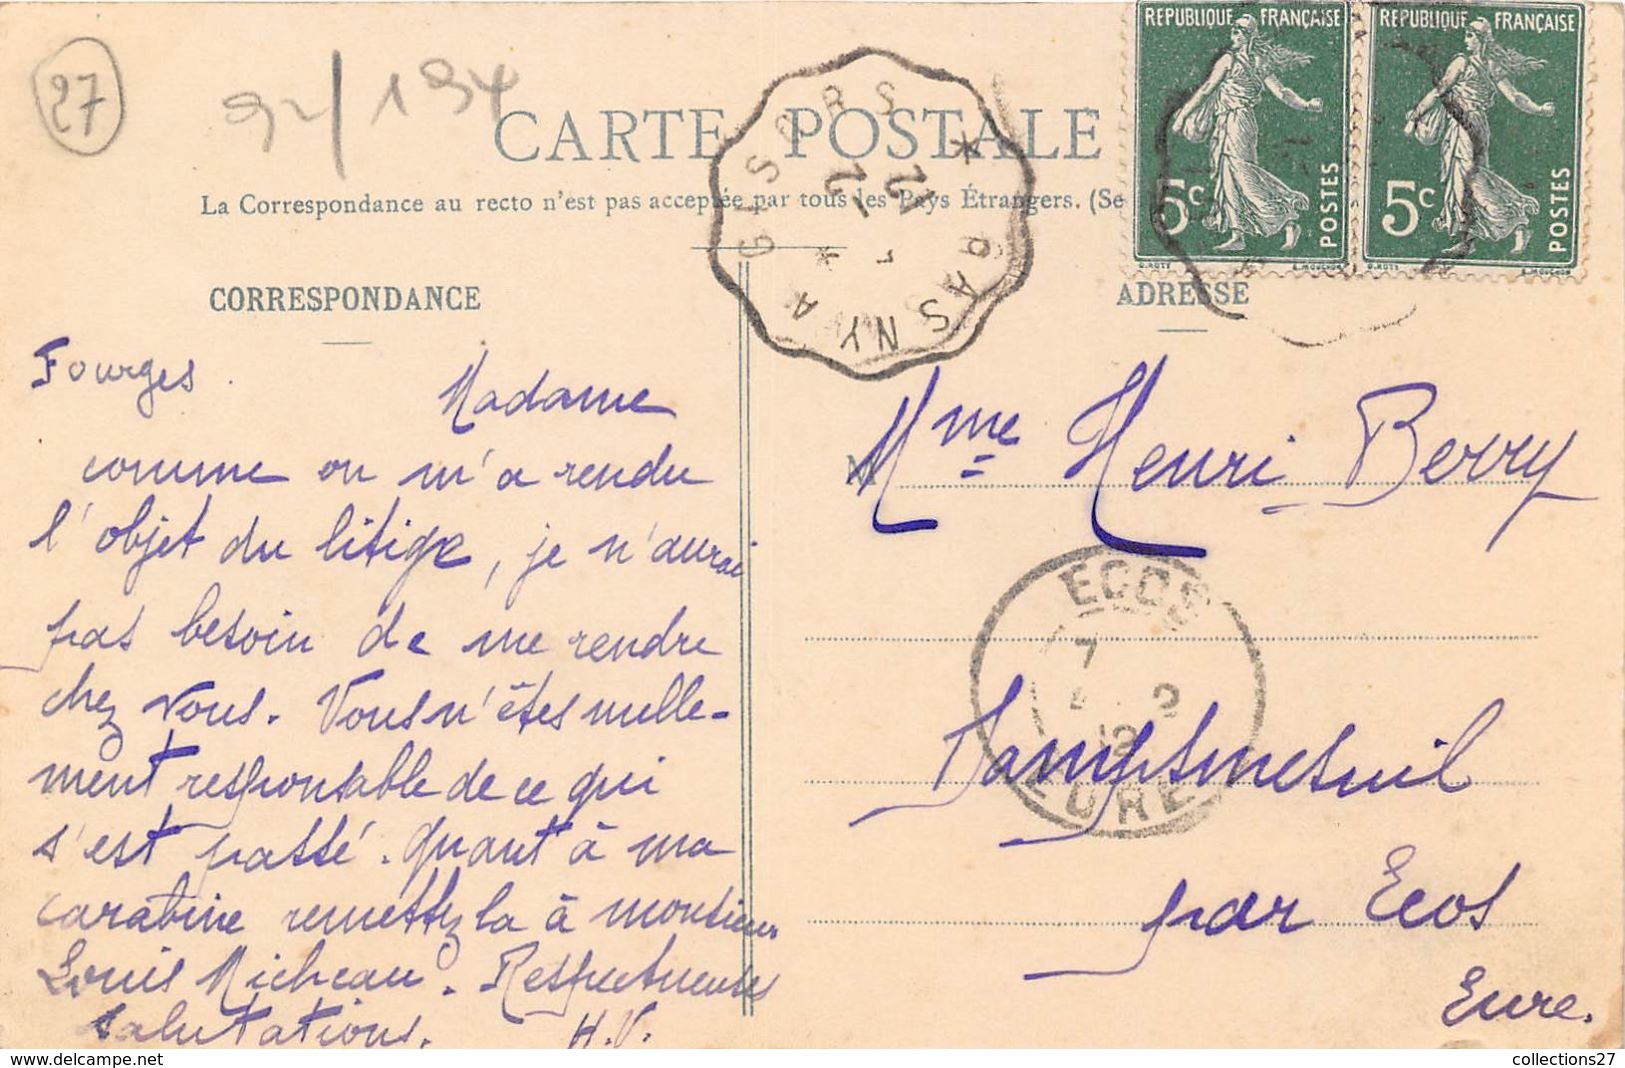 27
CARTE POSTALE
La Correspondance au recto n'est pas acceptée par tous les Pays Étrangers. (Se
REPUBLIQUE FRANÇAISE
5c POSTES
REPUBLIQUE FRANÇAISE
5c POSTES
GISORS * PASNY A *
CORRESPONDANCE
ADRESSE
Fourges.
Madame
comme on m'a rendu
l'objet du litige, je n'aurai
pas besoin de me rendre
chez vous. Vous n'êtes nulle-
ment responsable de ce qui
s'est passé. Quant à ma
carabine remettez la à monsieur
Louis Micheau. Respectueuses
salutations. H.V.
Mme Henri Berry
ECOS
7
12
EURE
Dampsmesnil
par Ecos
Eure.
collections27